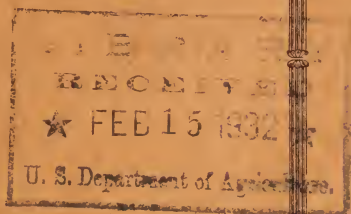 RECEIVED
★ FEB 15 1932 ★
U. S. Department of Agriculture.